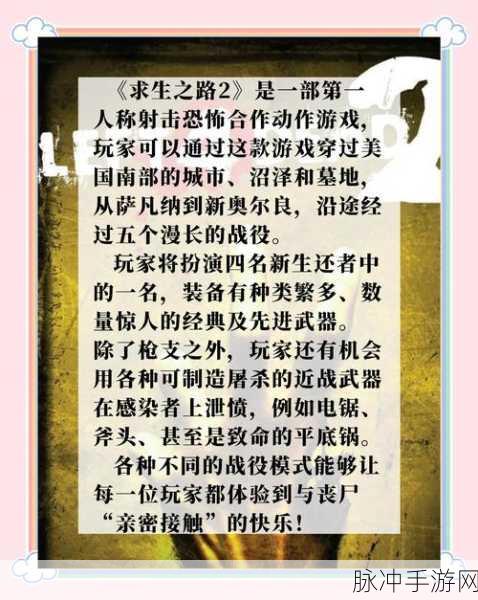 《求生之路2》是一部第一
人称射击恐怖合作动作游戏，
玩家可以通过这款游戏穿过美
国南部的城市、沼泽和墓地，
从萨凡纳到新奥尔良，沿途经
过五个漫长的战役。
玩家将扮演四名新生还者中
的一名，装备有种类繁多、数
量惊人的经典及先进武器。
除了枪支之外，玩家还有机会
用各种可制造屠杀的近战武器
在感染者上泄愤，例如电锯、
斧头、甚至是致命的平底锅。
各种不同的战役模式能够让
每一位玩家都体验到与丧尸
“亲密接触”的快乐！
脉冲手游网